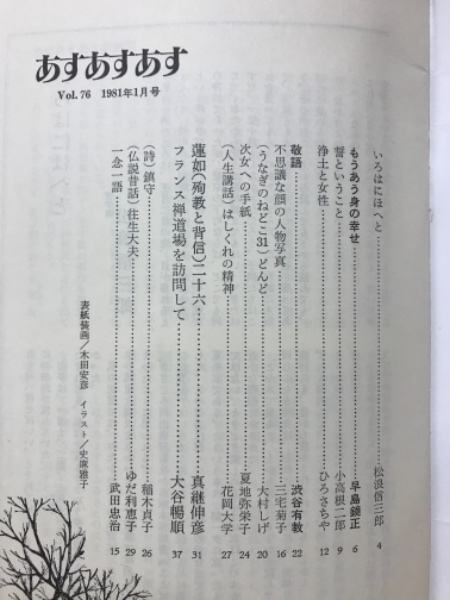 あすあすあす
Vol. 76 1981年1月号
いろはにほへと…………松浪信三郎 4
もうあう身の幸せ…………早島鏡正 6
誓ということ…………小高根二郎 9
浄土と女性…………ひろさちや 12
敬語…………渋谷有教 22
不思議な顔の人物写真…………三宅菊子 16
(うなぎのねどこ31)どんど…………大村しげ 20
次女への手紙…………夏地弥栄子 24
(人生講話)はしくれの精神…………花岡大学 27
蓮如(殉教と背信)二十六…………真継伸彦 31
フランス禅道場を訪問して…………大谷暢順 37
(詩)鎮守…………稲木貞子 26
(仏説昔話)往生大夫…………ゆだ利恵子 29
一念一語…………武田忠治 15
表紙装画/木田安彦 イラスト/史麻雅子